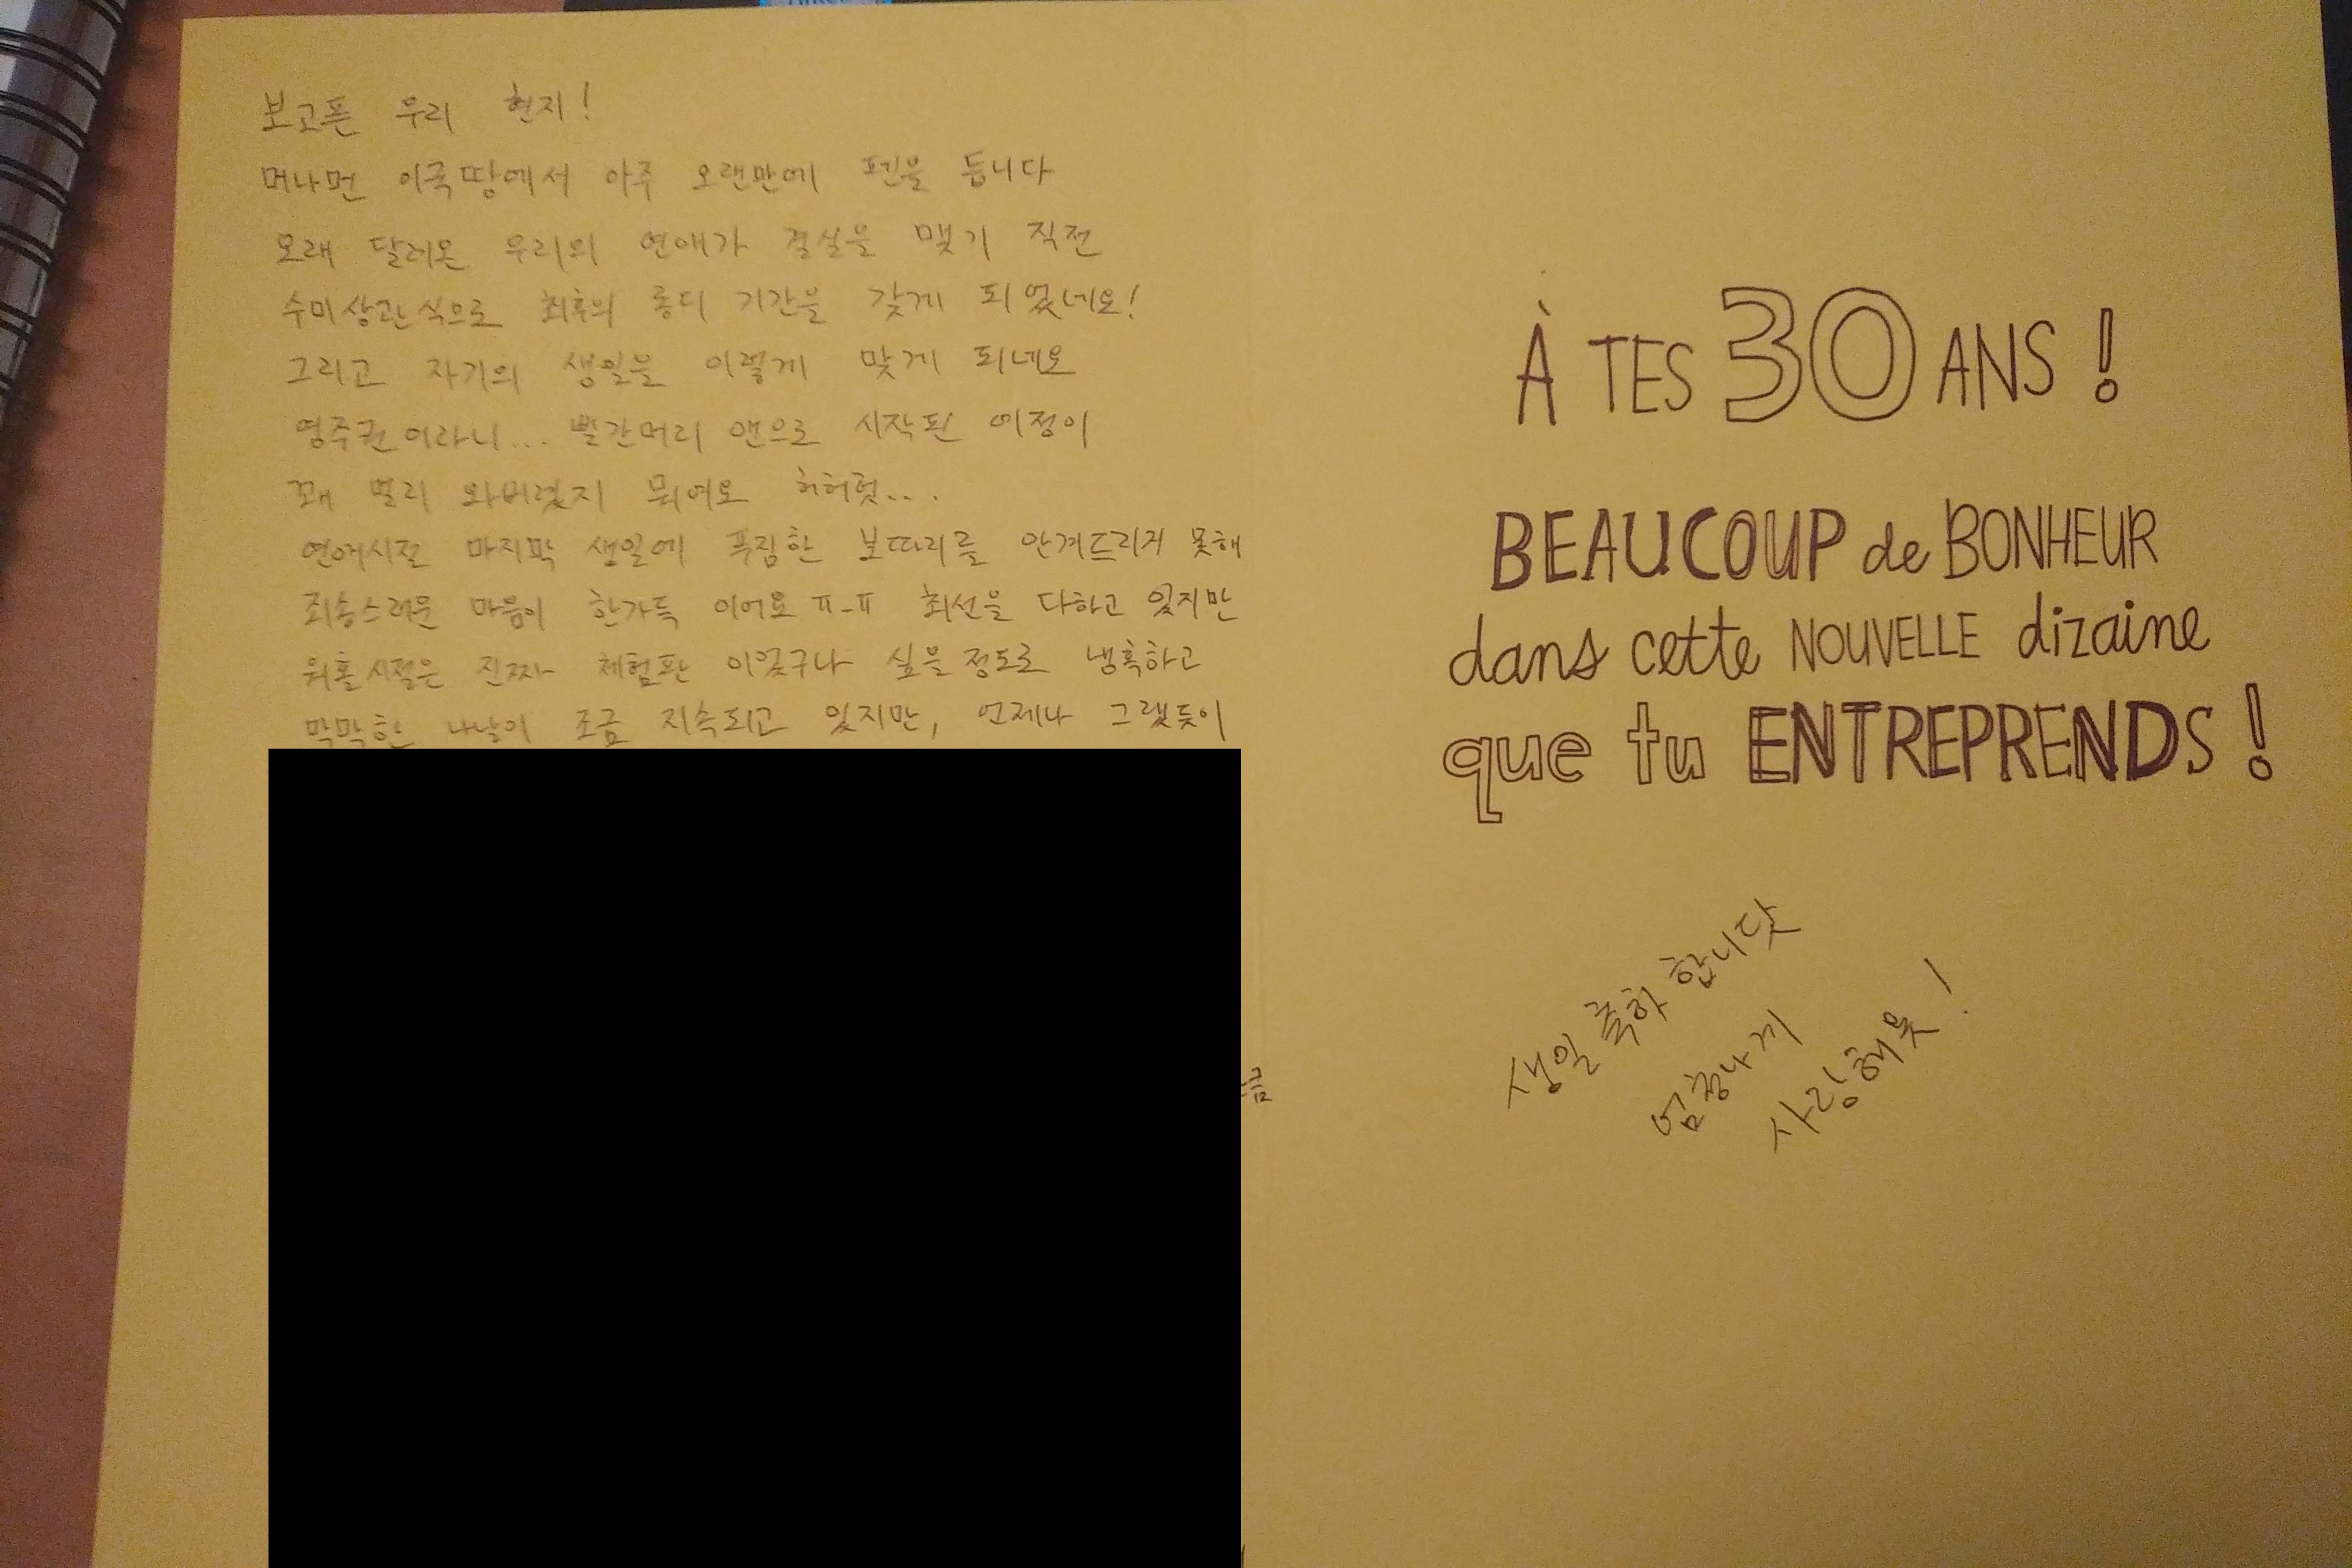 보고픈 우리 현지!
머나먼 이국땅에서 아주 오랜만에 펜을 듭니다
오래 달려온 우리의 연애가 결실을 맺기 직전
수미상관식으로 최후의 롱디 기간을 갖게 되었네요!
그리고 자기의 생일을 이렇게 맞게 되네요
영주권이라니... 빨간머리 앤으로 시작된 여정이
꽤 멀리 와버렸지 뭐에요 허허헛...
연애시절 마지막 생일에 푸짐한 보따리를 안겨드리지 못해
죄송스러운 마음이 한가득 이에요 ㅠ-ㅠ 최선을 다하고 있지만
워홀시절은 진짜 체험판 이었구나 싶을정도로 냉혹하고
막막한 나날이 조금 지속되고 있지만, 언제나 그랬듯이
À TES 30 ANS !
BEAUCOUP de BONHEUR
dans cette NOUVELLE dizaine
que tu ENTREPRENDS !
생일 축하 합니닷
엄청나게
사랑해욧!